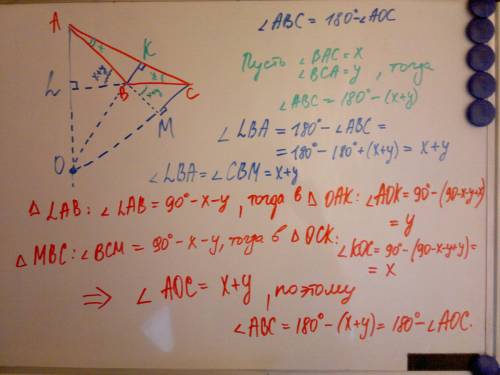 ∠ABC = 180° - ∠AOC
Пусть ∠BAC = x
∠BCA = y, тогда
∠ABC = 180° - (x+y)
∠LBA = 180° - ∠ABC =
= 180° - 180° + (x+y) = x+y
∠LBA = ∠CBM = x+y
A
K
x
x+y
y
L
B
C
x+y
M
O
△LAB: ∠LAB = 90° - x - y, тогда в △OAK: ∠AOK = 90° - (90-x-y+x)
= y
△MBC: ∠BCM = 90° - x - y, тогда в △OCK: ∠KOC = 90° - (90-x-y+y) =
= x
⇒ ∠AOC = x+y, поэтому
∠ABC = 180° - (x+y) = 180° - ∠AOC.